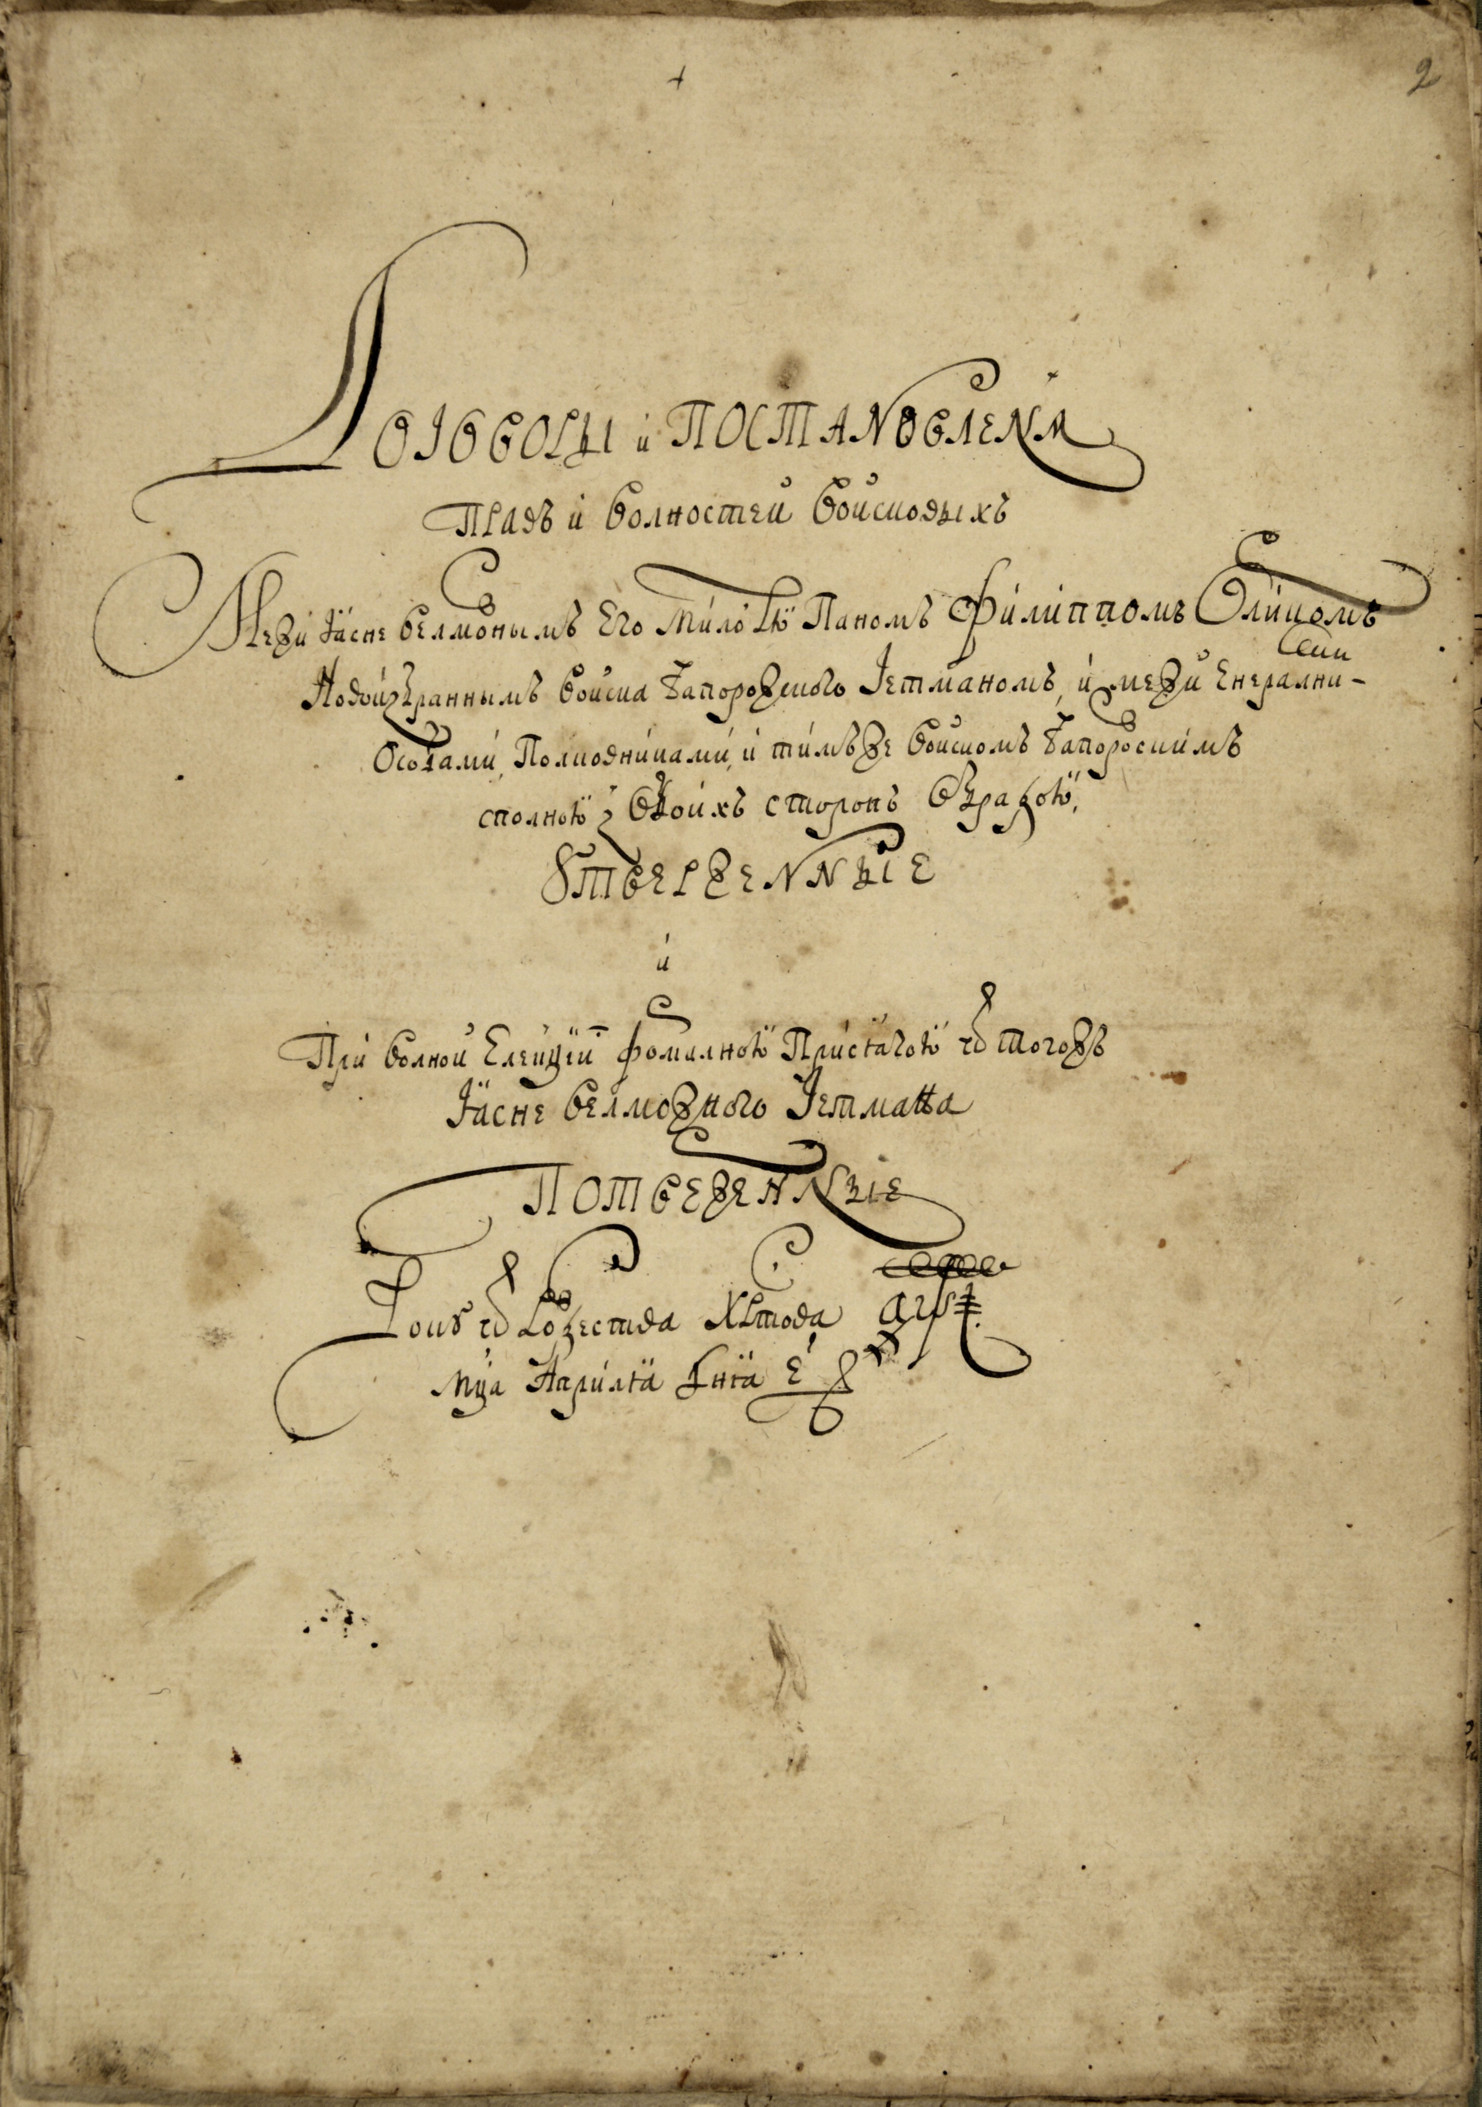 2
ДОГОВОРЫ и ПОСТАNОВЛЕNІѦ
Правъ и волностей Войсковыхъ
Межи Ꙗсне велможнымъ Его милостю Паномъ Филиппомъ Ѡрликомъ
Новоизбраннымъ войска Запорожского Гетманомъ, и межи Енералними
Особами, Полковниками, и тимъже войскомъ Запорозскимъ
сполною з обоихъ сторонъ Обрадою,
ꙋТВЕРЖЕNNЫЕ
и
При волной Елекцїи формалною Присѧгою ѿ тогожъ
Ꙗсне велможного Гетмана
ПОТВЕРЖЕННЫЕ
Рокꙋ ѿ Рожества Христова ҂аѱі
Мцѧ Априлѧ днѧ е